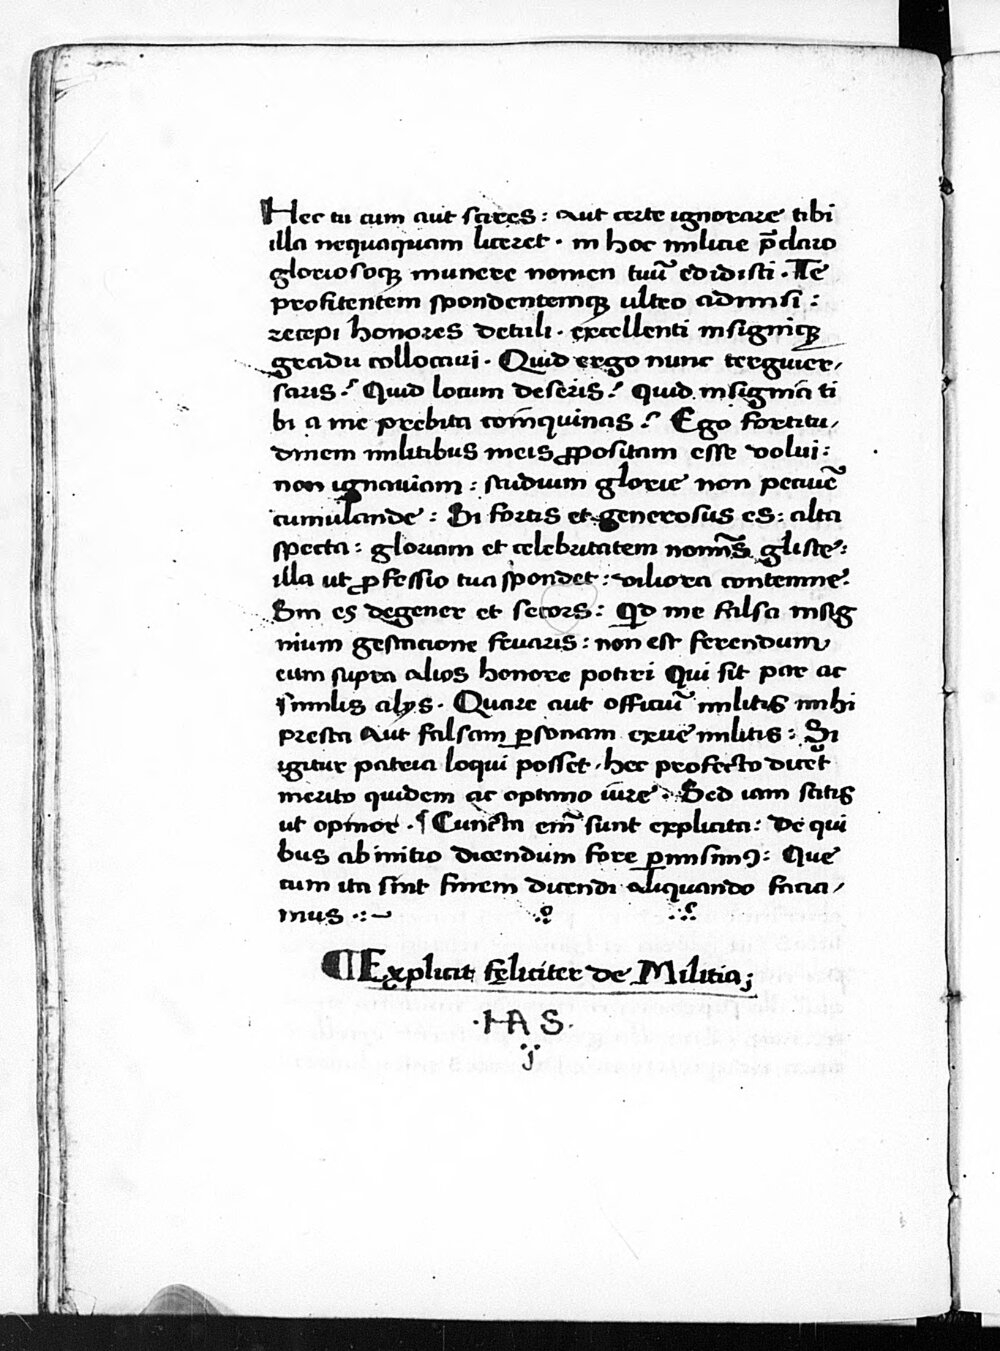 Hec tu cum aut scires : Aut certe ignorare tibi
illa nequaquam liceret · in hoc militie p̄claro
gloriosoqꝫ munere nomen tuū edidisti · Te
profitentem spondentemqꝫ ultro admisi :
recepi honores detuli · excellenti insigniqꝫ
gradu collocavi · Quid ergo nunc terguiver/
saris ? Quid locum deseris ? Quid insignia ti
bi a me prebita coīnquinas ? Ego fortitu/
dinem militibus meis ꝓpositam esse volui :
non ignaviam : studium glorie non pecuīe
cumulande : Si fortis et generosus es : alta
specta : gloriam et celebritatem nomīs gliste :
illa ut ꝓfessio tua spondet : viliora contemne ?
Sin es degener et secors : Qd me falsa insig
nium gestacione fruaris : non est ferendum
eum supra alios honore potiri Qui sit par ac
similis alijs · Quare aut officiū militis mihi
presta Aut falsam ꝑsonam exue militis : Si
igitur patria loqui posset · hec profecto dicēt
merito quidem ac optimo iūre · Sed iam scitis
ut opinor · ¶ Cuncta em̄ sunt explicita : De qui
bus ab initio dicendum fore ꝑmisimꝰ : Que
cum ita sint finem dicendi aliquando facia/
mus ·:~
¶ Explicit feliciter de Militia;
· H A S ·
j